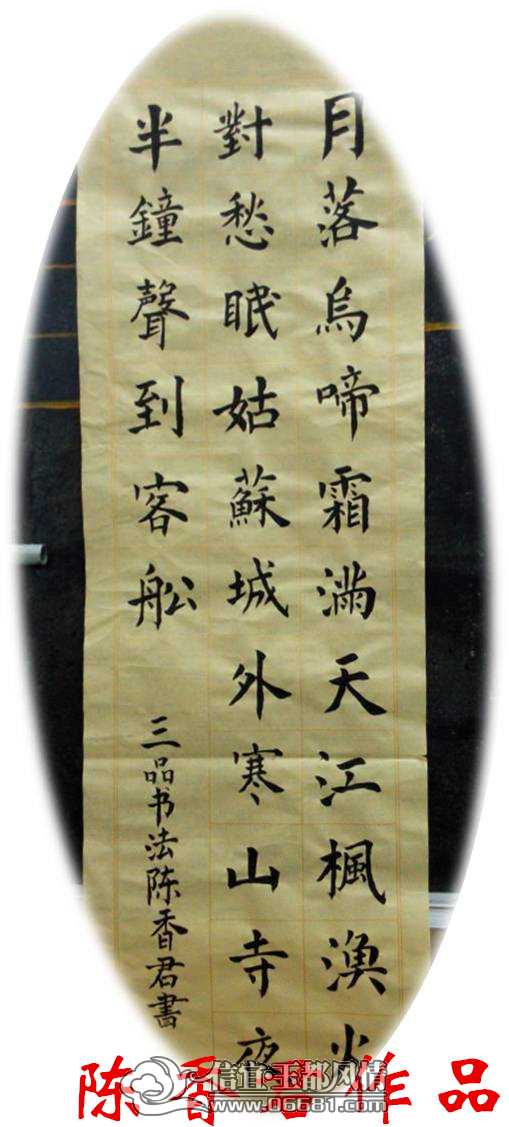 月落烏啼霜滿天江楓漁火
對愁眠姑蘇城外寒山寺夜
半鐘聲到客船
三品书法陈香君書
陈香君作品
信宜玉都风情
www.06681.com